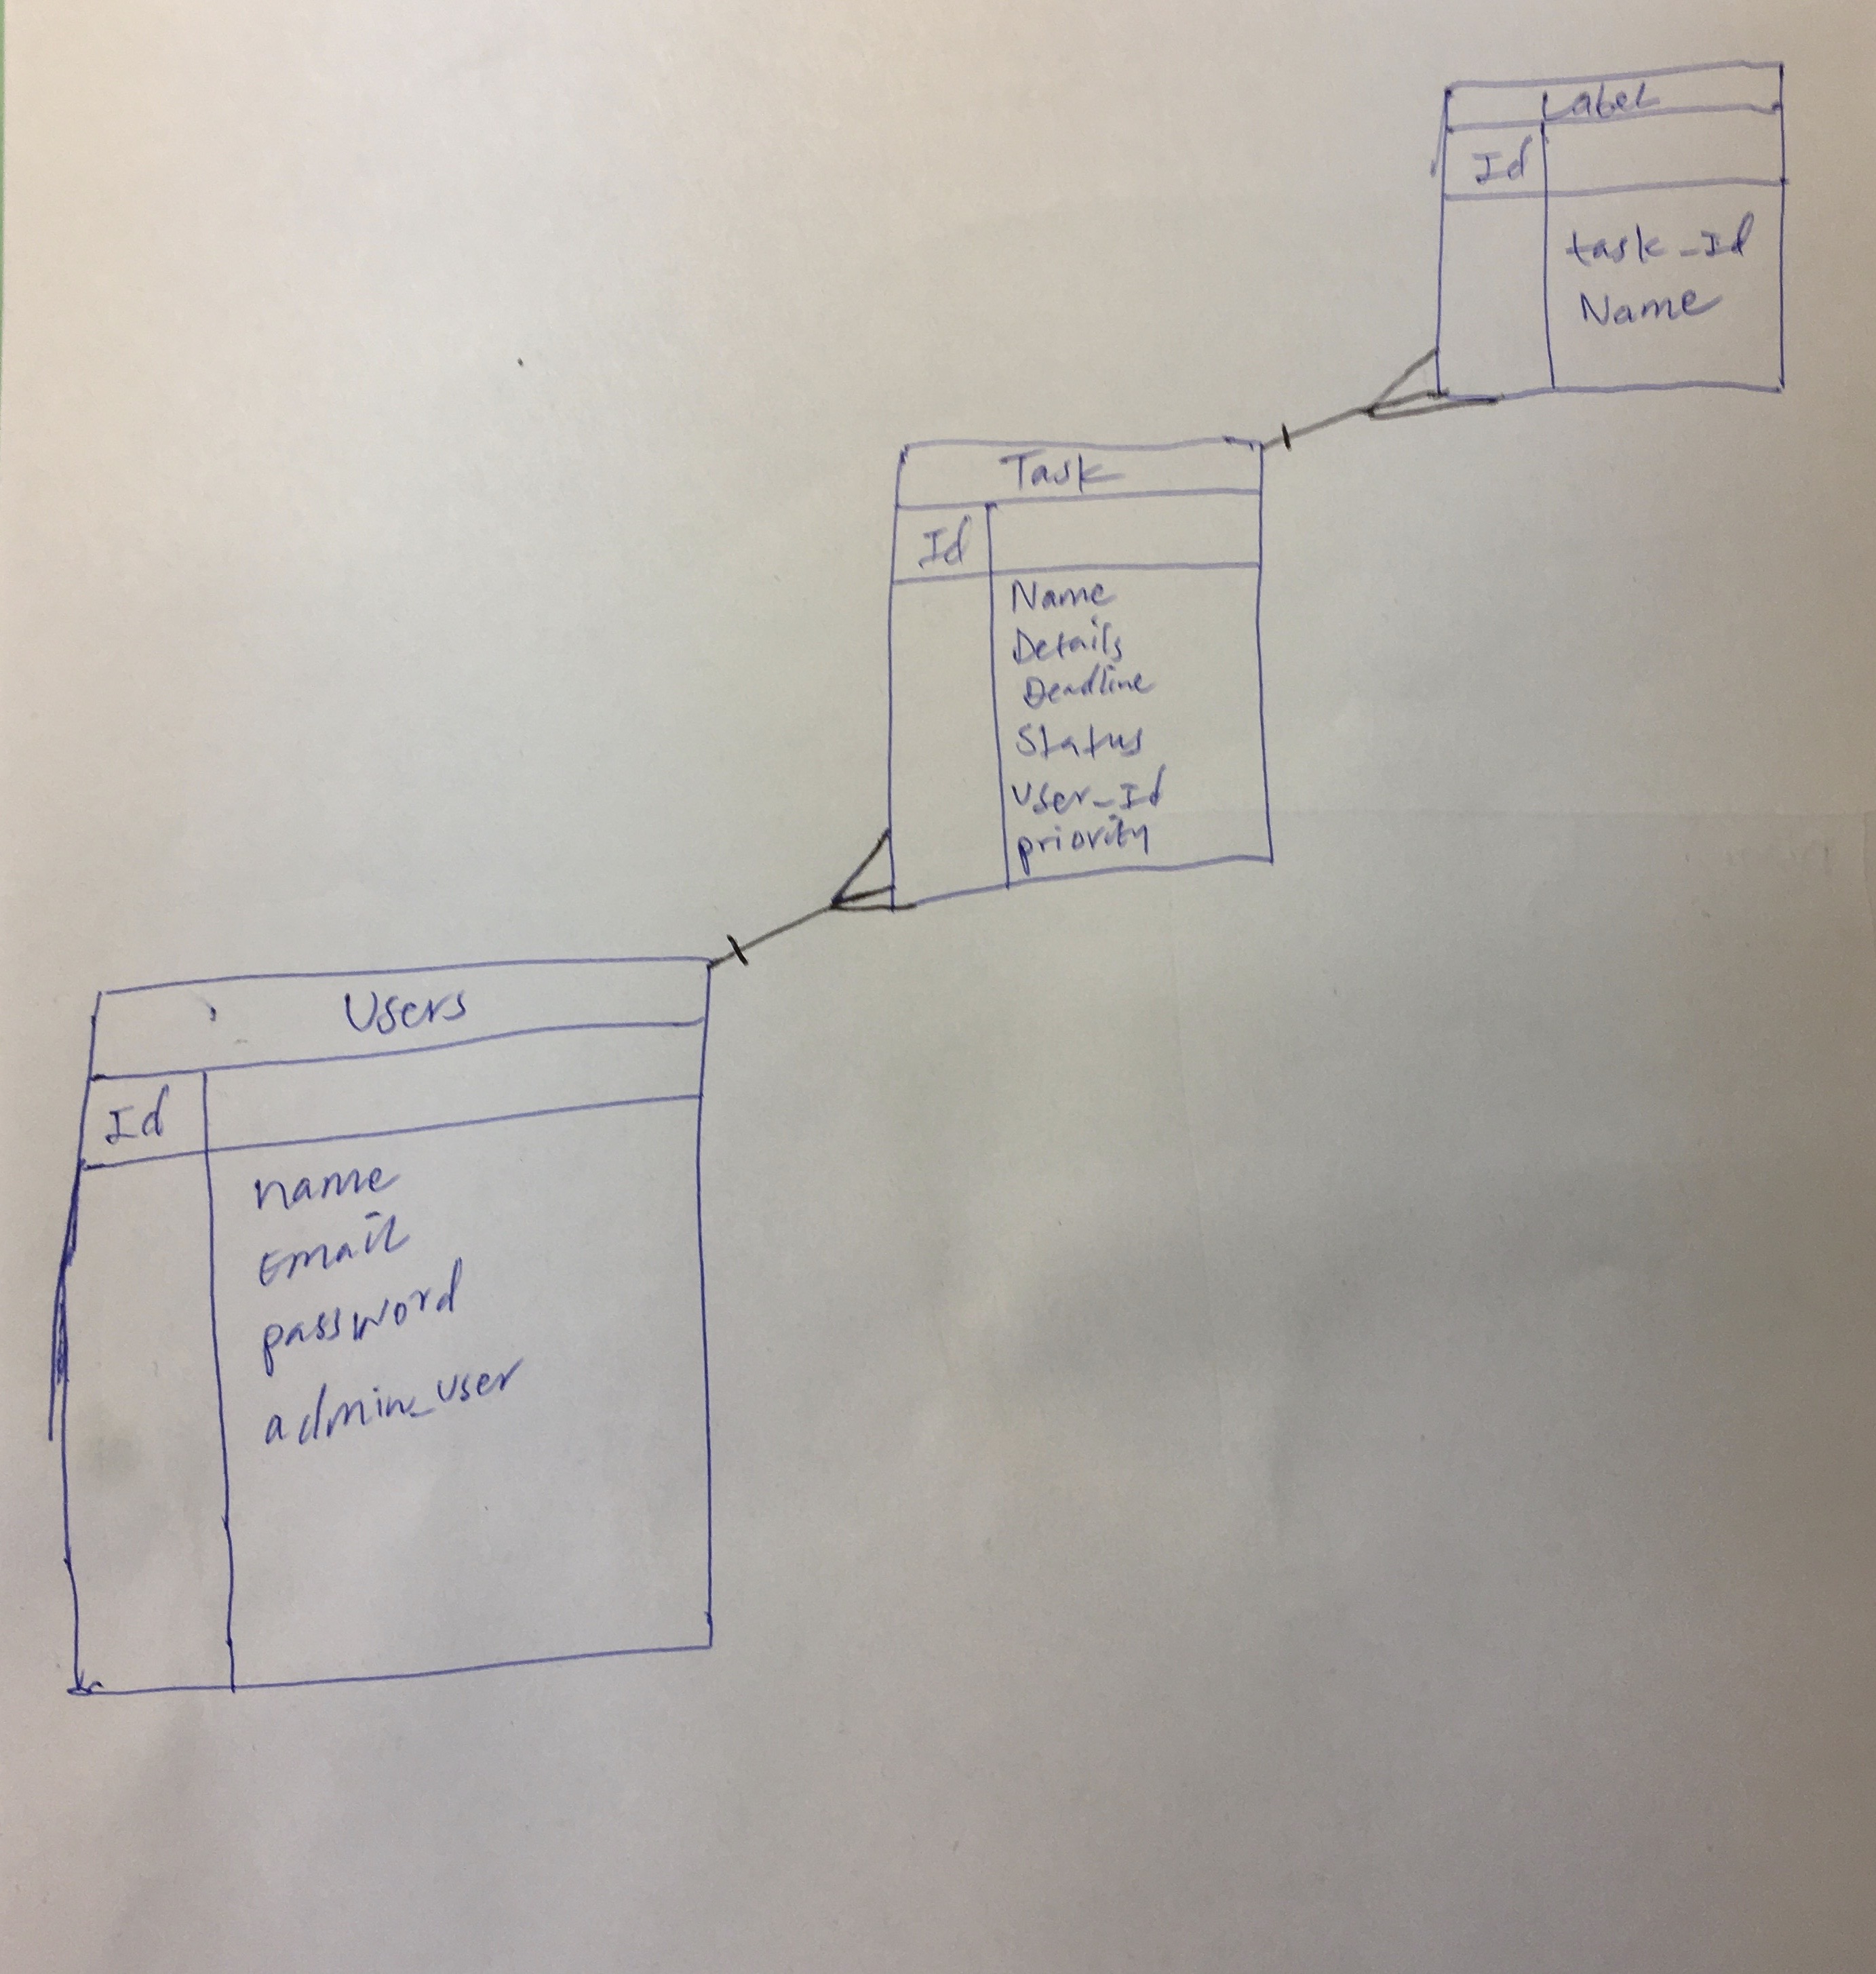 Label
Id
task_Id
Name
Task
Id
Name
Details
Deadline
Status
User_Id
priority
Users
Id
name
Email
password
admin_user